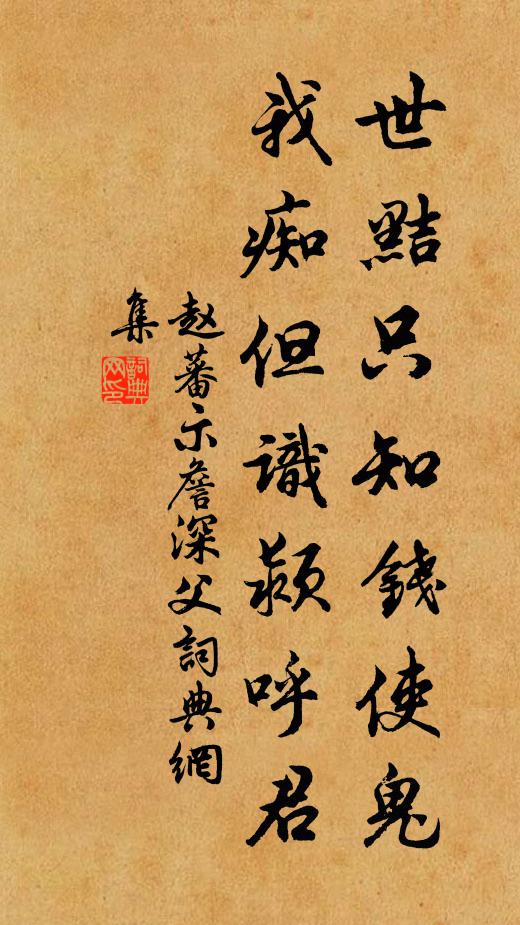 世黠只知錢使鬼
我痴但識穎呼君
赵蕃示詹深父詞典網
集
詞典
网印